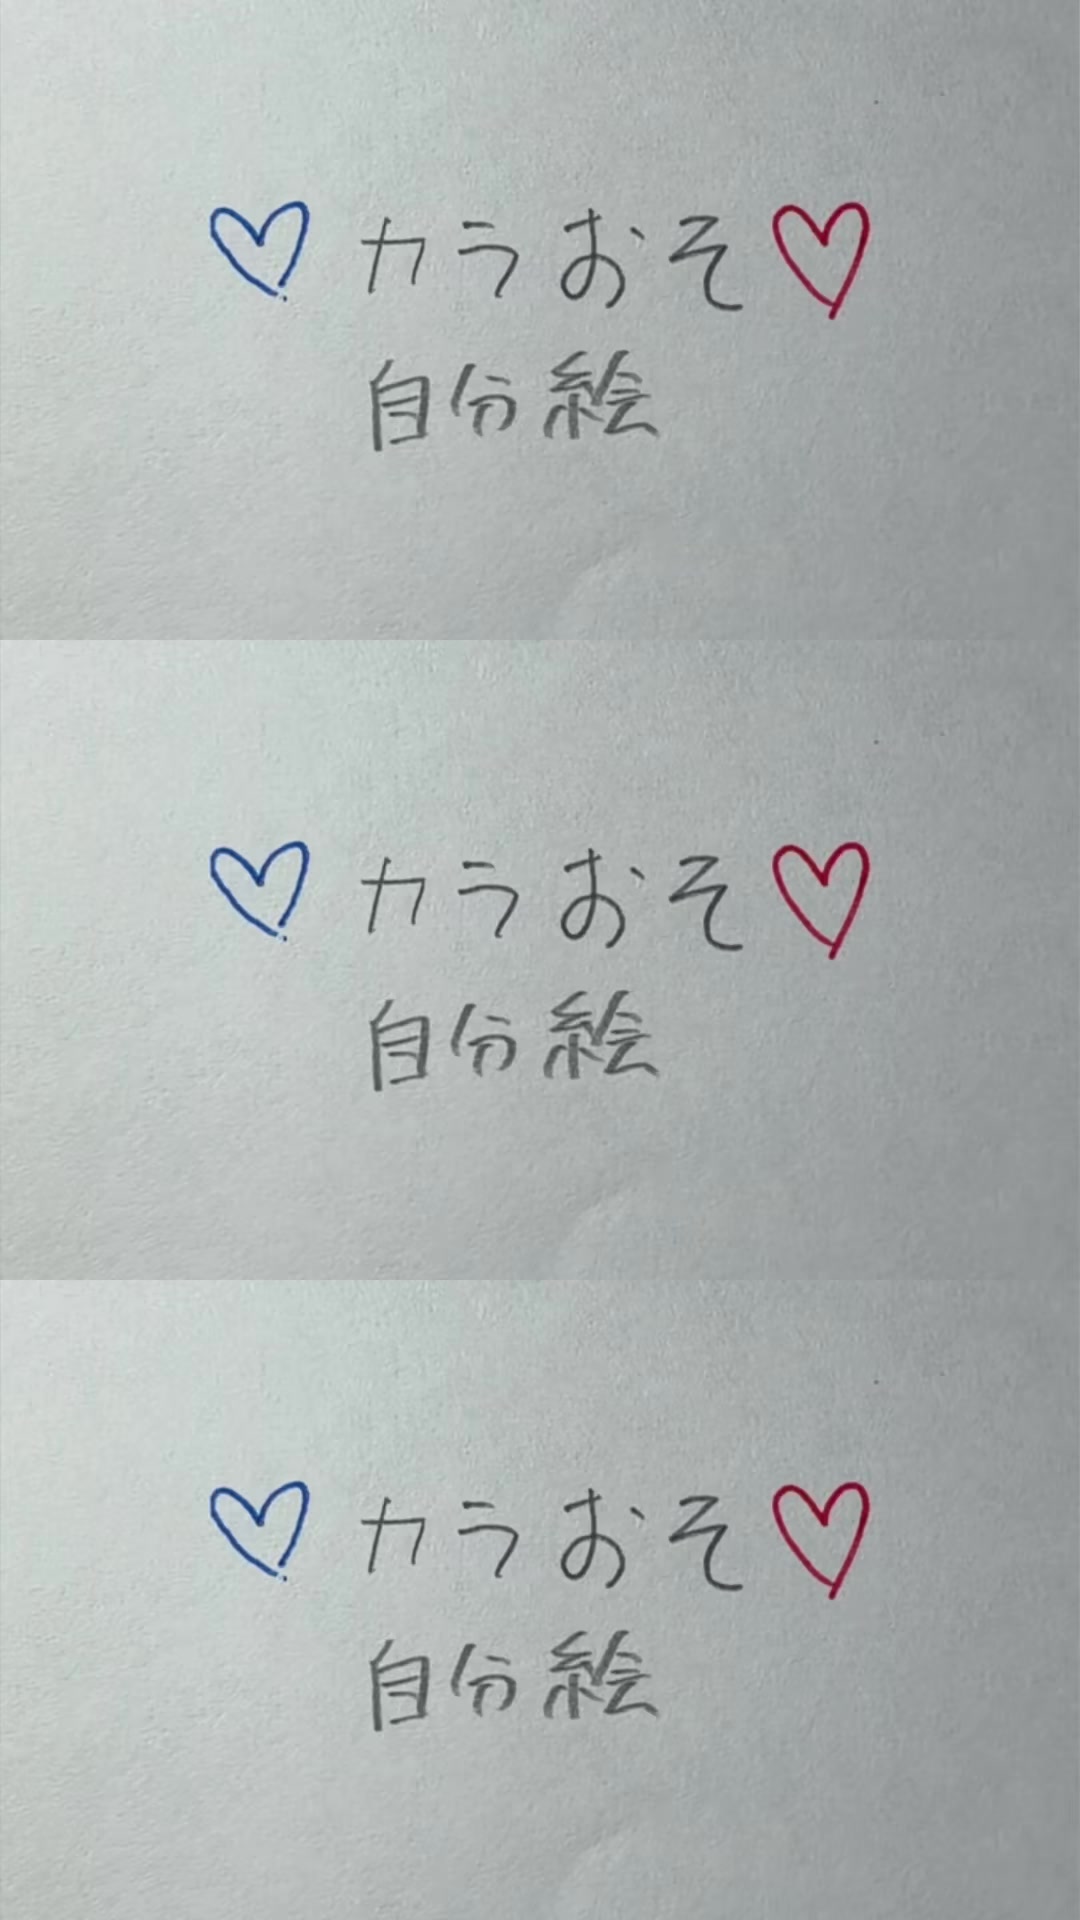 ♡カラおそ♡
自分絵
♡カラおそ♡
自分絵
♡カラおそ♡
自分絵